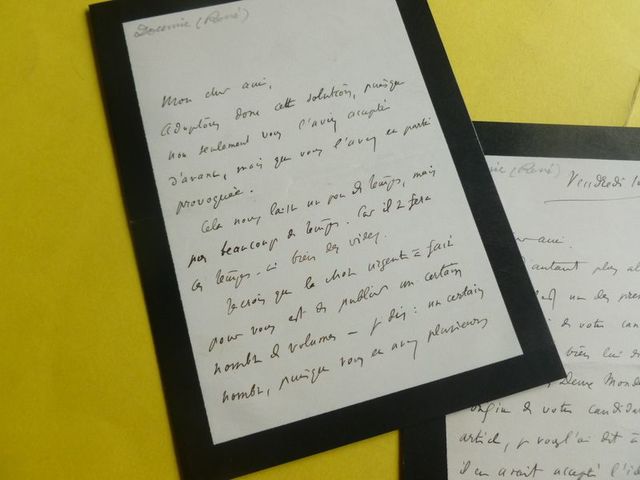 Doumic (René)
Mon cher ami,
Adoptons donc cette solution, puisque
non seulement vous l'aviez acceptée
d'avance, mais que vous l'avez en partie
provoquée.
Cela nous laisse un peu de temps, mais
pas beaucoup de temps. Car il y aura
ces temps-ci bien des vides.
Je crois que la chose urgente à faire
pour vous est de publier un certain
nombre de volumes — je dis : un certain
nombre, puisque vous en avez plusieurs
mic (René)
Vendredi
ami.
autant plus
un des
de votre
bien lui
Deux Mond
de votre candida
article, je vous l'ai dit à
il en avait accepté l'id